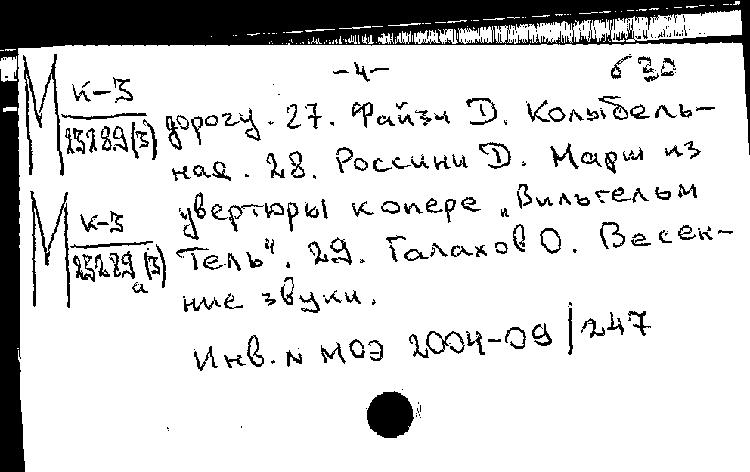 -4-
630
М к-3
25289(3)
дорогу. 27. Файзи Д. Колыбель-
ная. 28. Россини Д. Марш из
М к-3
25289(3)
а
увертюры к опере „Вильгельм
Тель“. 29. Галахов О. Весен-
ние звуки.
Инв. N МОЭ 2004-09/247